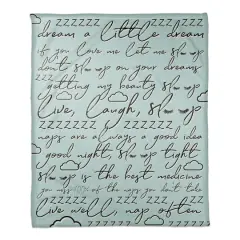 zzzzz
dream a little dream
if you love me let me sleep
don't sleep on your dreams
zzzzzz
getting my beauty sleep on
live, laugh, sleep
zzzzzzz
naps are always a good idea
good night, sleep tight
zzzzzz
sleep is the best medicine
you miss 100% of the naps you don't take
zzzzzzz
live well, nap often